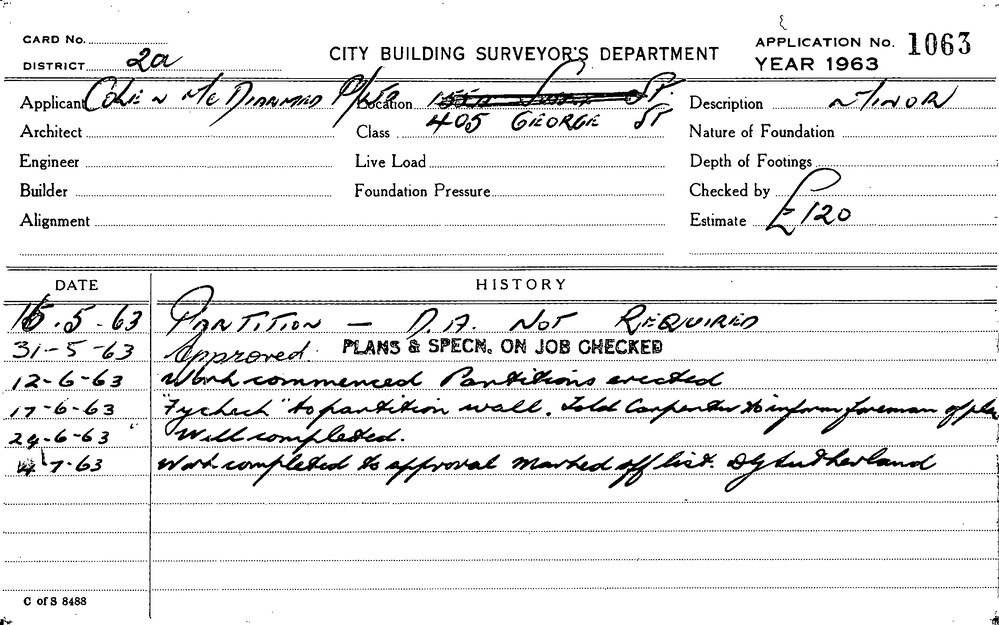 CARD No.
DISTRICT 2a
CITY BUILDING SURVEYOR'S DEPARTMENT
APPLICATION No. 1063
YEAR 1963
Applicant Colin McDiarmid P/L
Location St.
Description MINOR
Architect
Class 405 GEORGE ST
Nature of Foundation
Engineer
Live Load
Depth of Footings
Builder
Foundation Pressure
Checked by
Alignment
Estimate £120
DATE HISTORY
15.5.63 PARTITION — D.A. NOT REQUIRED
31-5-63 Approved. PLANS & SPECN. ON JOB CHECKED
12-6-63 Work commenced Partitions erected
17-6-63 to partition wall. Told Carpenter to inform foreman of
24-6-63 " Wall completed.
7-63 Work completed to approval marked off list. Sutherland
C of S 8488